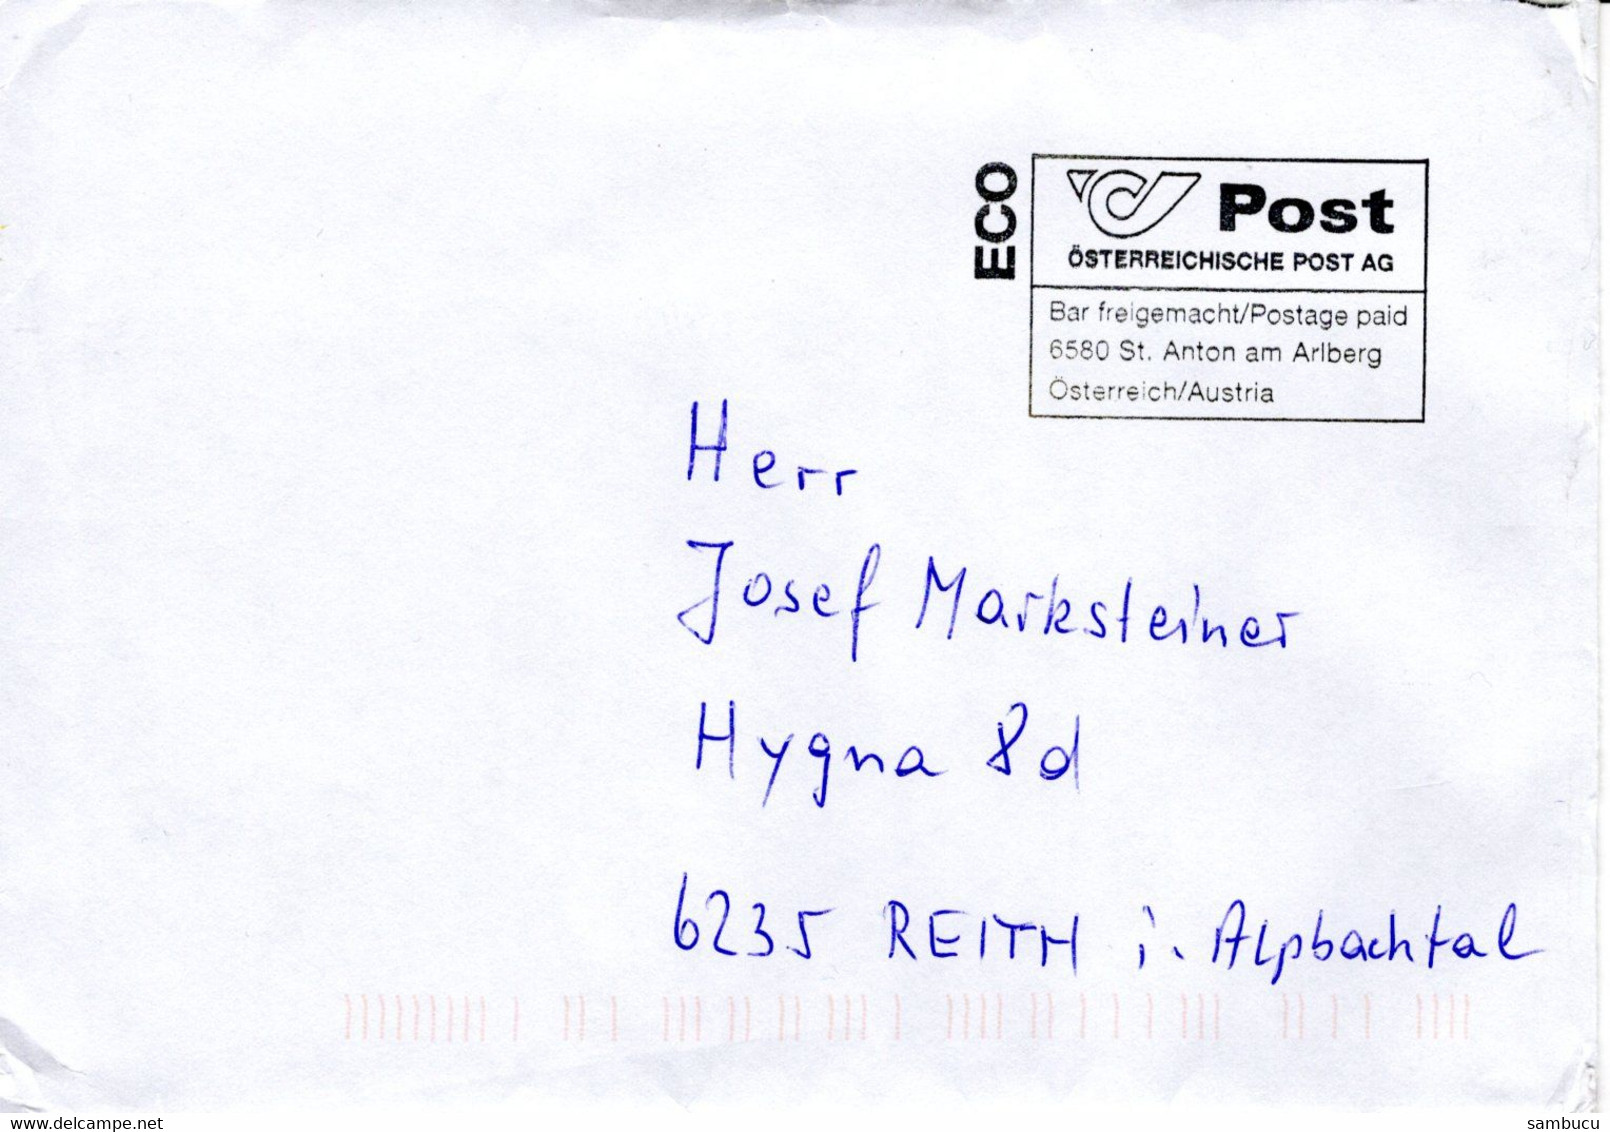 ECO
Post
ÖSTERREICHISCHE POST AG
Bar freigemacht/Postage paid
6580 St. Anton am Arlberg
Österreich/Austria
Herr
Josef Marksteiner
Hygna 8d
6235 REITH i. Alpbachtal
www.delcampe.net
sambucu